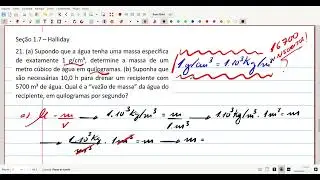 Seção 1.7 – Halliday
21. (a) Supondo que a água tenha uma massa específica
de exatamente 1 g/cm³, determine a massa de um
metro cúbico de água em quilogramas. (b) Suponha que
são necessárias 10,0 h para drenar um recipiente com
5700 m³ de água. Qual é a "vazão de massa" da água do
recipiente, em quilogramas por segundo?
1 g/cm³ = 1.10³ Kg/m³
a) μ = m/v → 1.10³ Kg/m³ = m/1m³ → 1.10³ Kg/m³ . 1m³ = m
→ 1.10³ Kg/m³ . 1m³ = m → m =